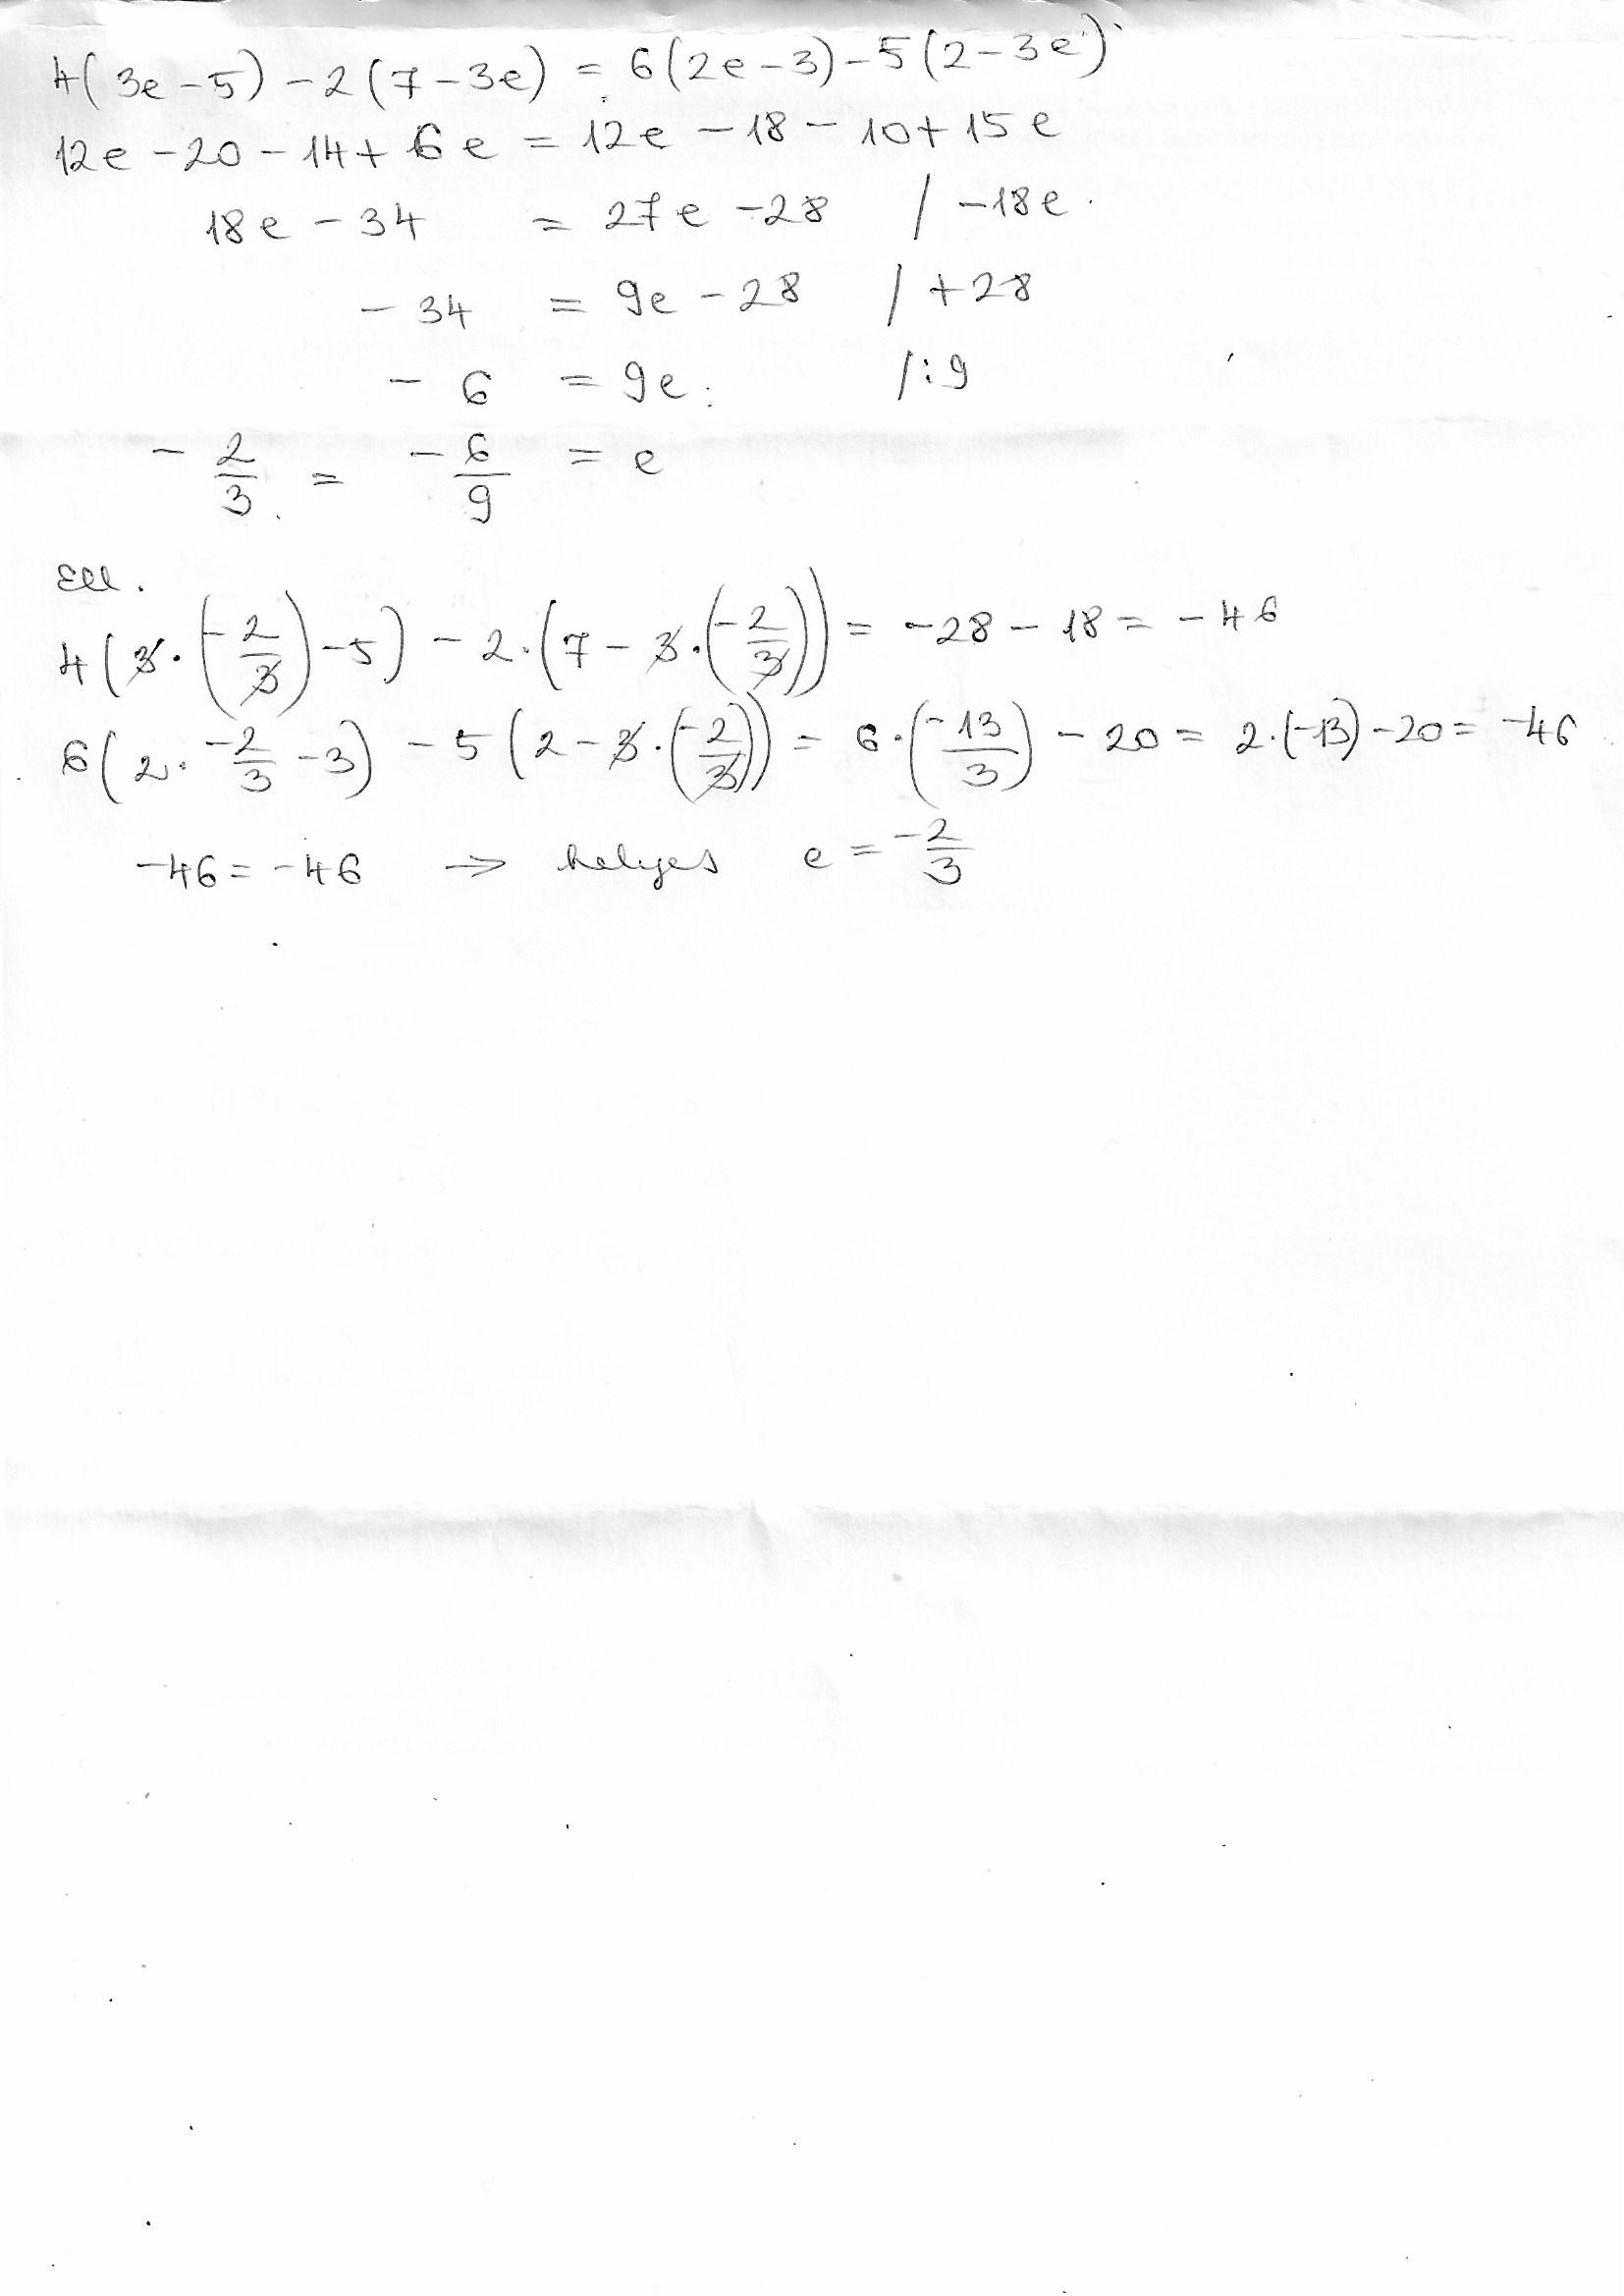 4(3e-5)-2(7-3e) = 6(2e-3)-5(2-3e)
12e-20-14+6e = 12e-18-10+15e
18e-34 = 27e-28 /-18e
-34 = 9e-28 /+28
-6 = 9e /:9
-2/3 = -6/9 = e
Ell.
4(3·(-2/3)-5)-2·(7-3·(-2/3)) = -28-18 = -46
6(2·-2/3-3)-5(2-3·(-2/3)) = 6·(-13/3)-20 = 2·(-13)-20 = -46
-46 = -46 → helyes e = -2/3